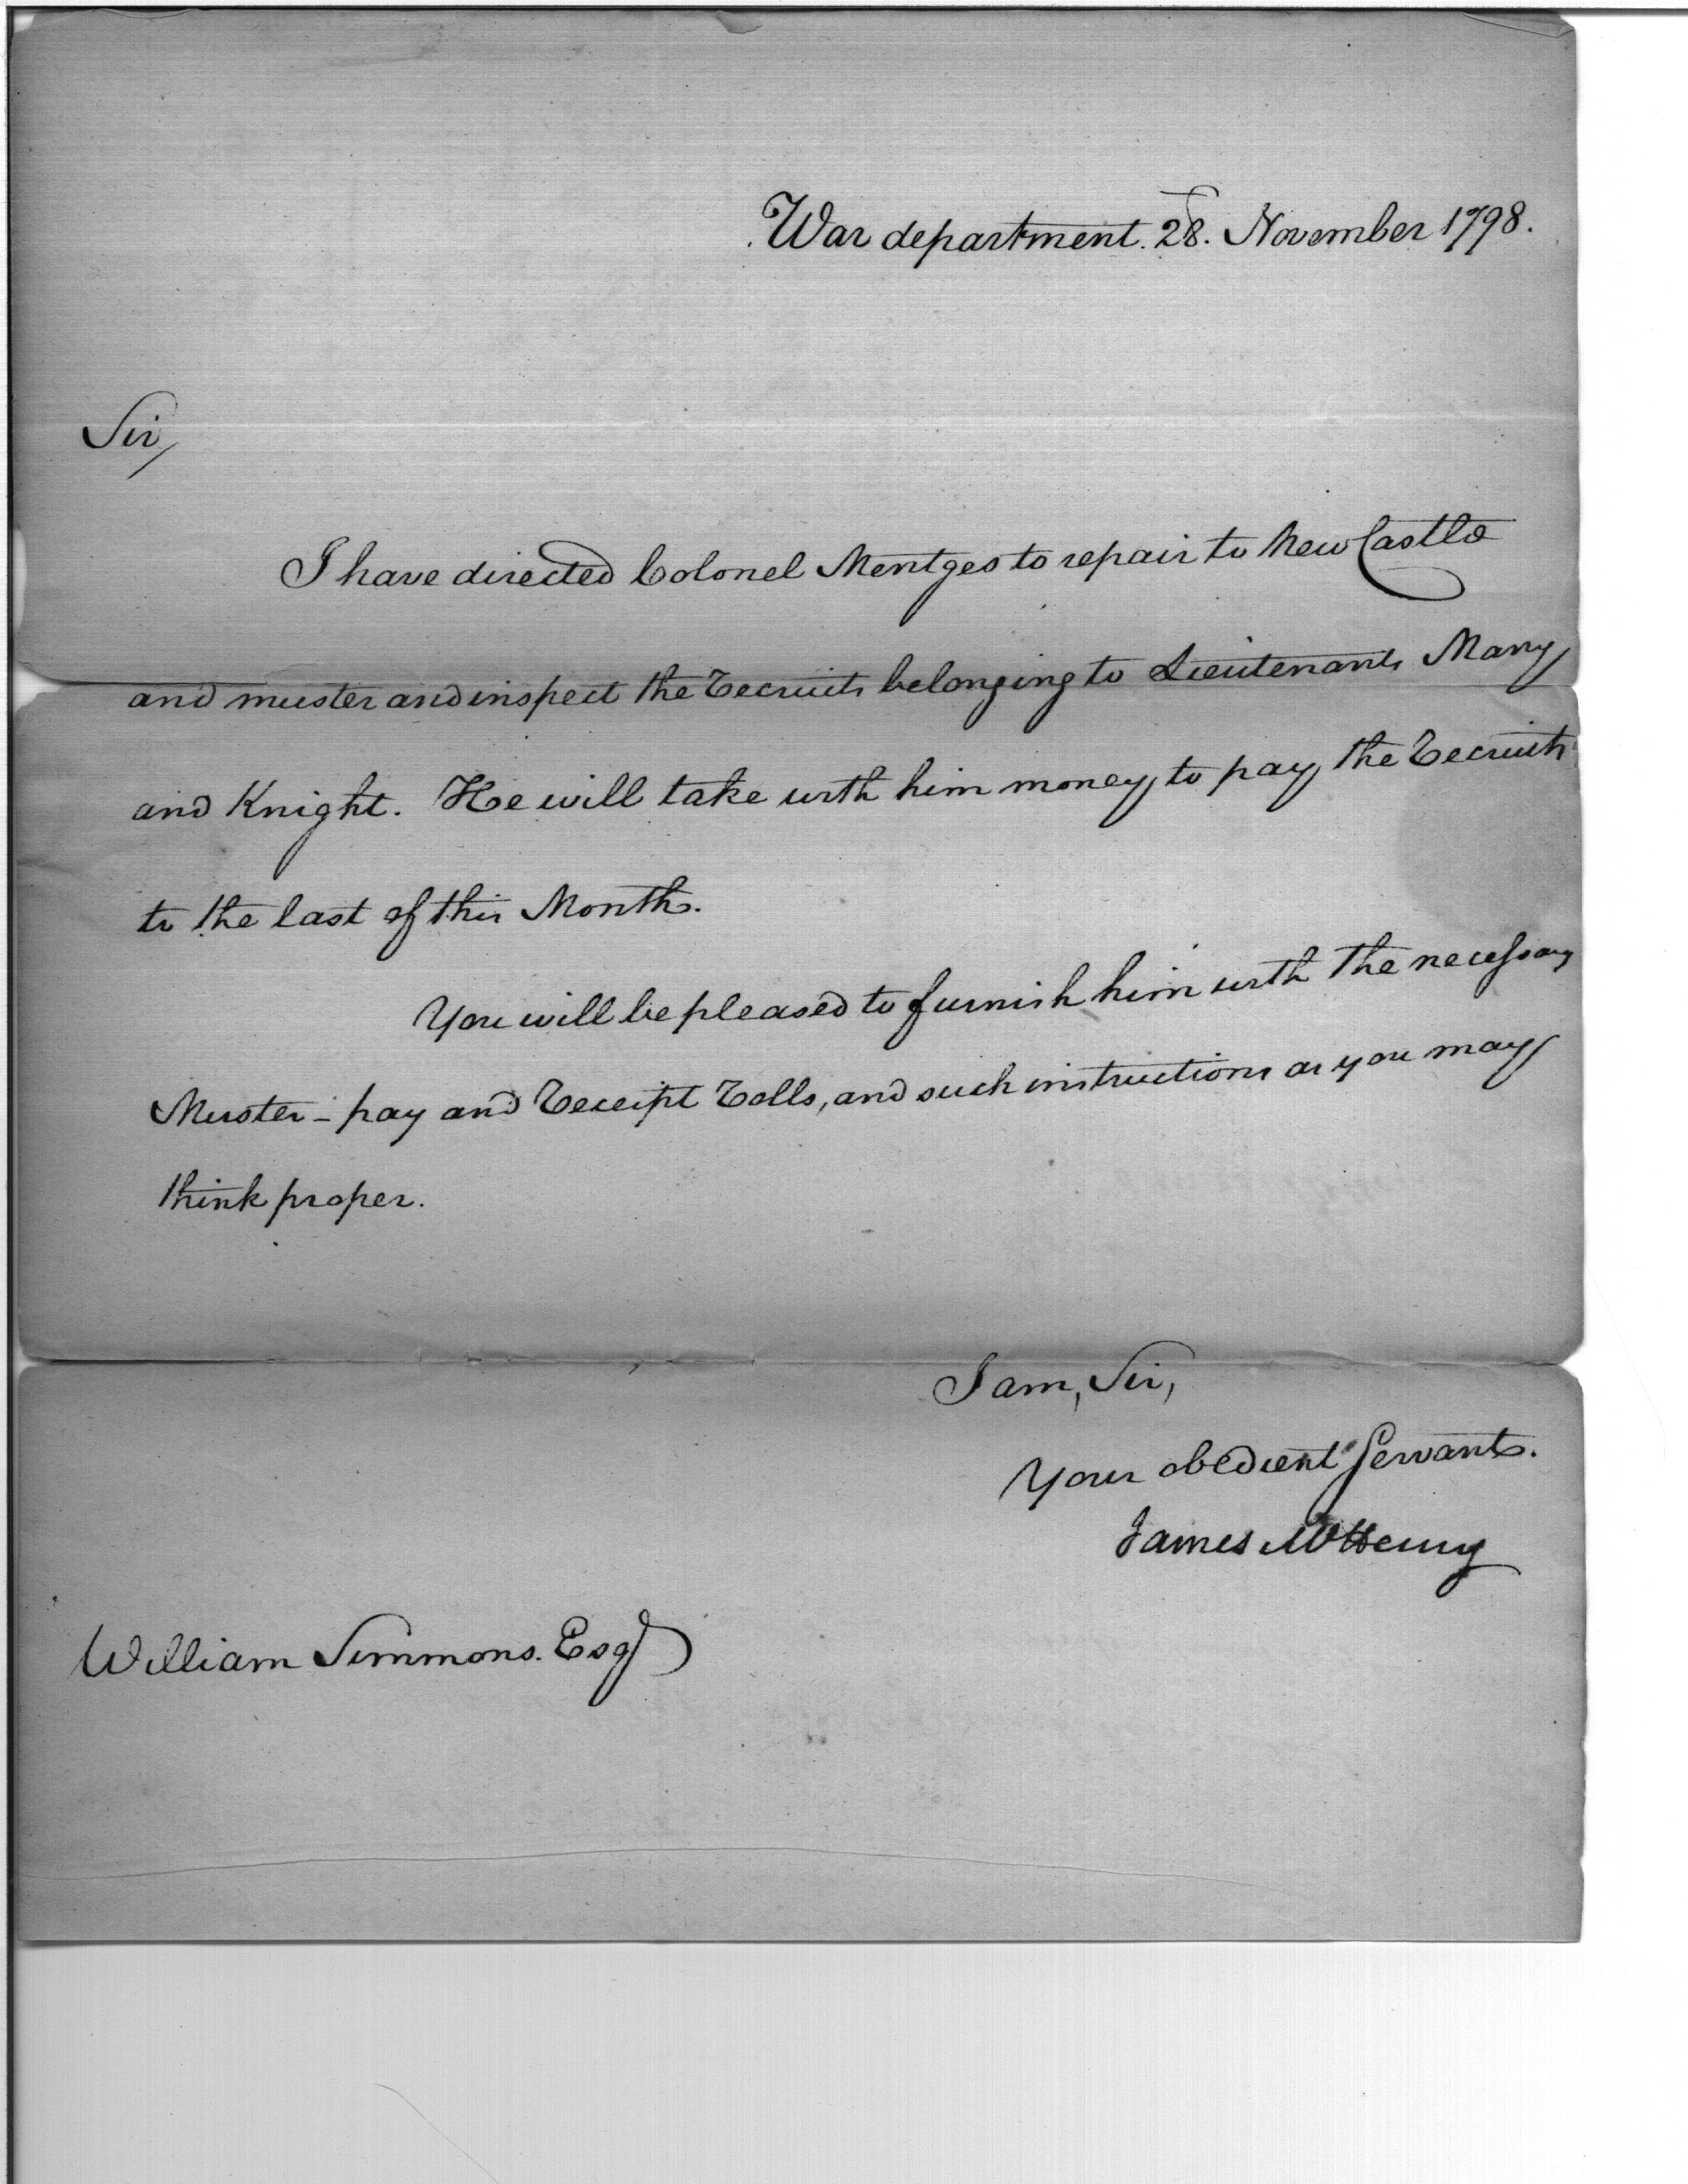 War department. 28. November 1798.
Sir,
I have directed Colonel Mentges to repair to New Castle
and muster and inspect the Recruits belonging to Lieutenants Many
and Knight. He will take with him money to pay the Recruits
to the last of this Month.
You will be pleased to furnish him with the necessary
Muster - pay and Receipt Rolls, and such instructions as you may
think proper.
I am, Sir,
Your obedient Servant.
James McHenry
William Simmons. Esqr